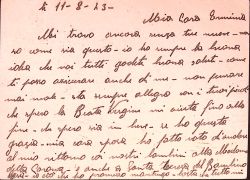 li 11-8-43-
Mia Cara Erminia
Mi trovo ancora senza tue nuove- non
so come sia questo- io ho sempre la buona
idea che voi tutti godete buona salute- come
ti posso assicurare anche di me- non pensare
mai male- sto sempre allegro con i
che spero la Beata Vergine mi aiuta fino alla
fine- che spero sia in bene- se ho questa
grazia- mia cara sposa ho fatto voto d'andare
al mio ritorno coi nostri bambini alla Madonna
della Corona- e anche a Santa Teresa del Bambino
che ho promesso tutto